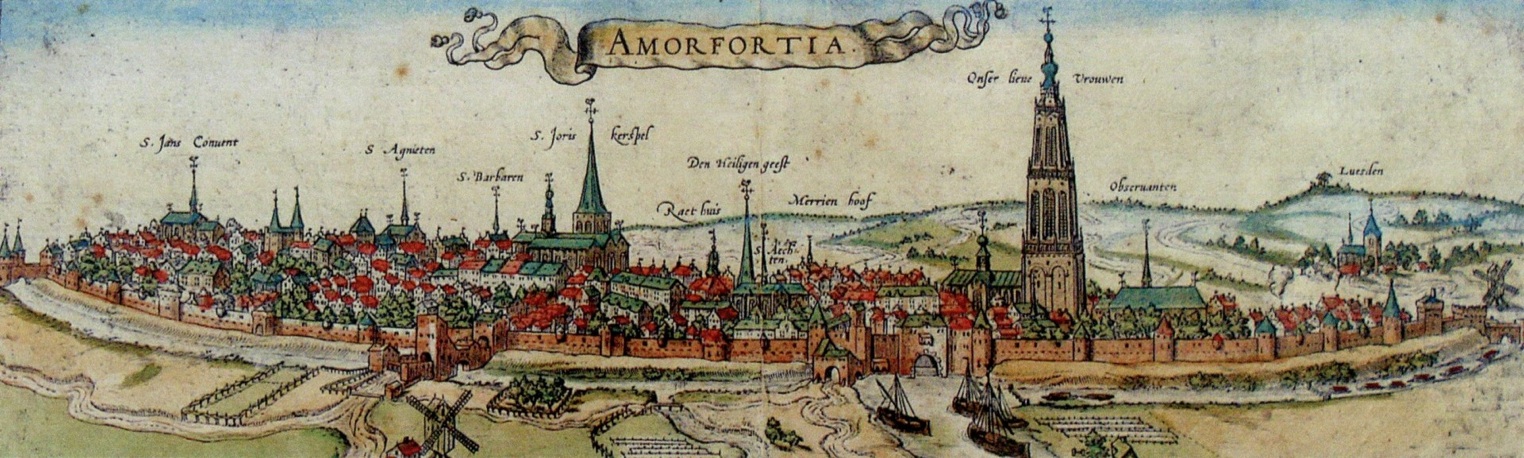 AMORFORTIA.
Onser lieue Vrouwen
S. Jans Conuent
S Agnieten
S. Joris kerspel
S. Barbaren
Den Heiligen geest
Raet huis
Merrien hoof
Obseruanten
Luesden